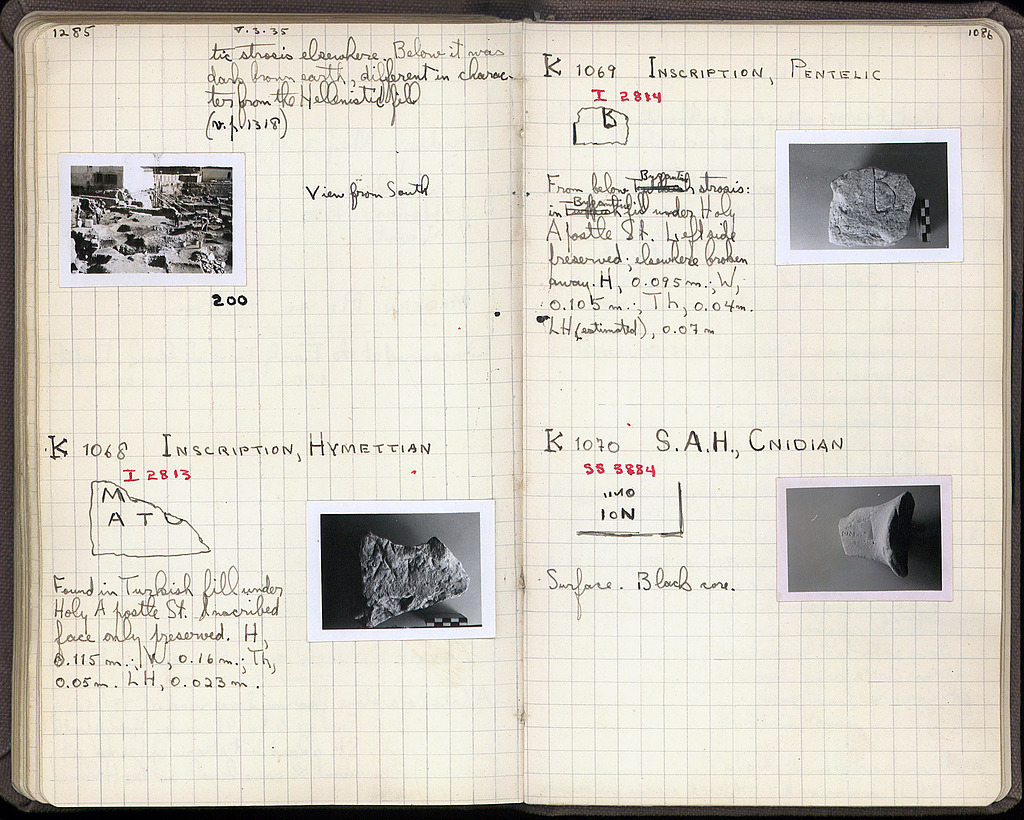 1285
V.3.35
tic strosis elsewhere. Below it was
dark brown earth, different in charac-
ter from the Hellenistic fill
(v. p. 1318)
View from South
200
K 1068 INSCRIPTION, HYMETTIAN
I 2813
M
A T
Found in Turkish fill under
Holy Apostle St. Inscribed
face only preserved. H,
0.115 m.; W, 0.16 m.; Th,
0.05 m. LH, 0.023 m.
1086
K 1069 INSCRIPTION, PENTELIC
I 2814
From below Byzantine strosis:
in Byzantine fill under Holy
Apostle St. Left side
preserved; elsewhere broken
away. H, 0.095 m.; W,
0.105 m.; Th, 0.04 m.
LH (estimated), 0.07 m
K 1070 S.A.H., CNIDIAN
SS 3884
ION
Surface. Black core.